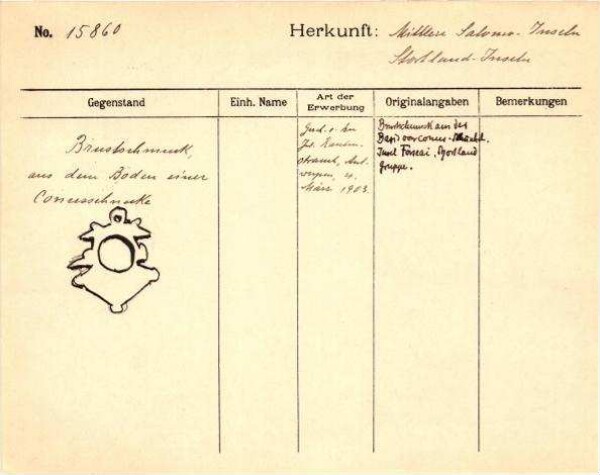 No. 15860
Herkunft: Mittlere Salomo-Inseln
Shortland-Inseln
Gegenstand
Einh. Name
Art der Erwerbung
Originalangaben
Bemerkungen
Brustschmuck,
aus dem Boden einer
Conusschnecke
März 1903.
Brustschmuck aus der
Basis von conus-
Insel Shortland
gruppe.